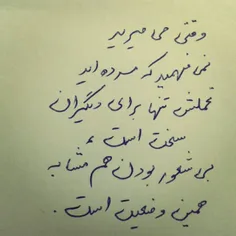 وقتی می میرید
نمی فهمید که مرده اید
تحملش تنها برای دیگران
سخت است ،
بی شعور بودن هم مشابه
همین وضعیت است .